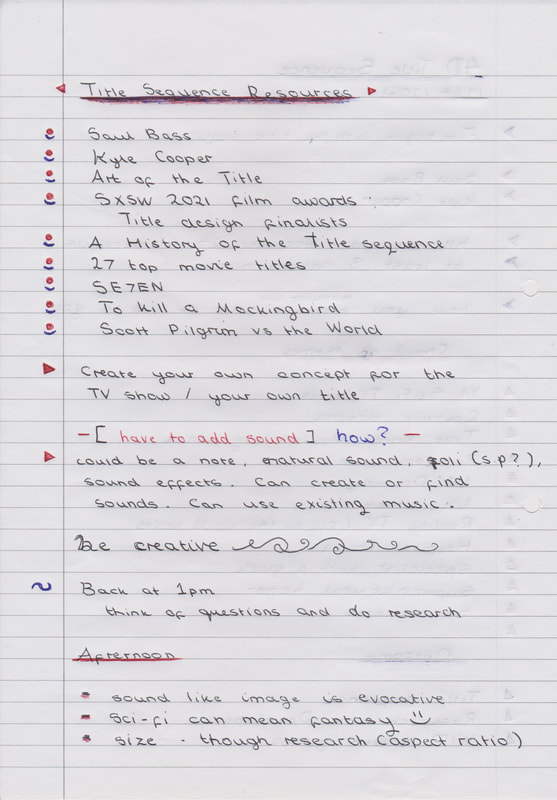 Title Sequence Resources
Saul Bass
Kyle Cooper
Art of the Title
SXSW 2021 film awards
Title design finalists
A History of the Title sequence
27 top movie titles
SE7EN
To kill a Mockingbird
Scott Pilgrim vs the World
Create your own concept for the
TV show / your own title
- [ have to add sound ] how? -
could be a note, natural sound, foli (s.p?),
sound effects. Can create or find
sounds. Can use existing music.
be creative
Back at 1pm
think of questions and do research
Afternoon
sound like image is evocative
Sci-fi can mean fantasy
size - though research (aspect ratio)